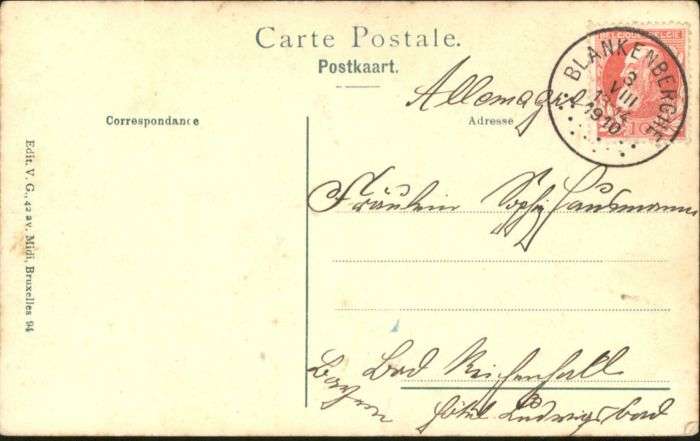 Carte Postale.
Postkaart.
Correspondance
Adresse
BELGIQUE BELGIE
10
BLANKENBERGHE
3
VIII
1910
Allemagne
Fräulein Sophie Hausmann
Bad Reichenhall
Bayern
Hôtel Ludwigsbad
Edit. V. G., 42 av. Midi, Bruxelles 94